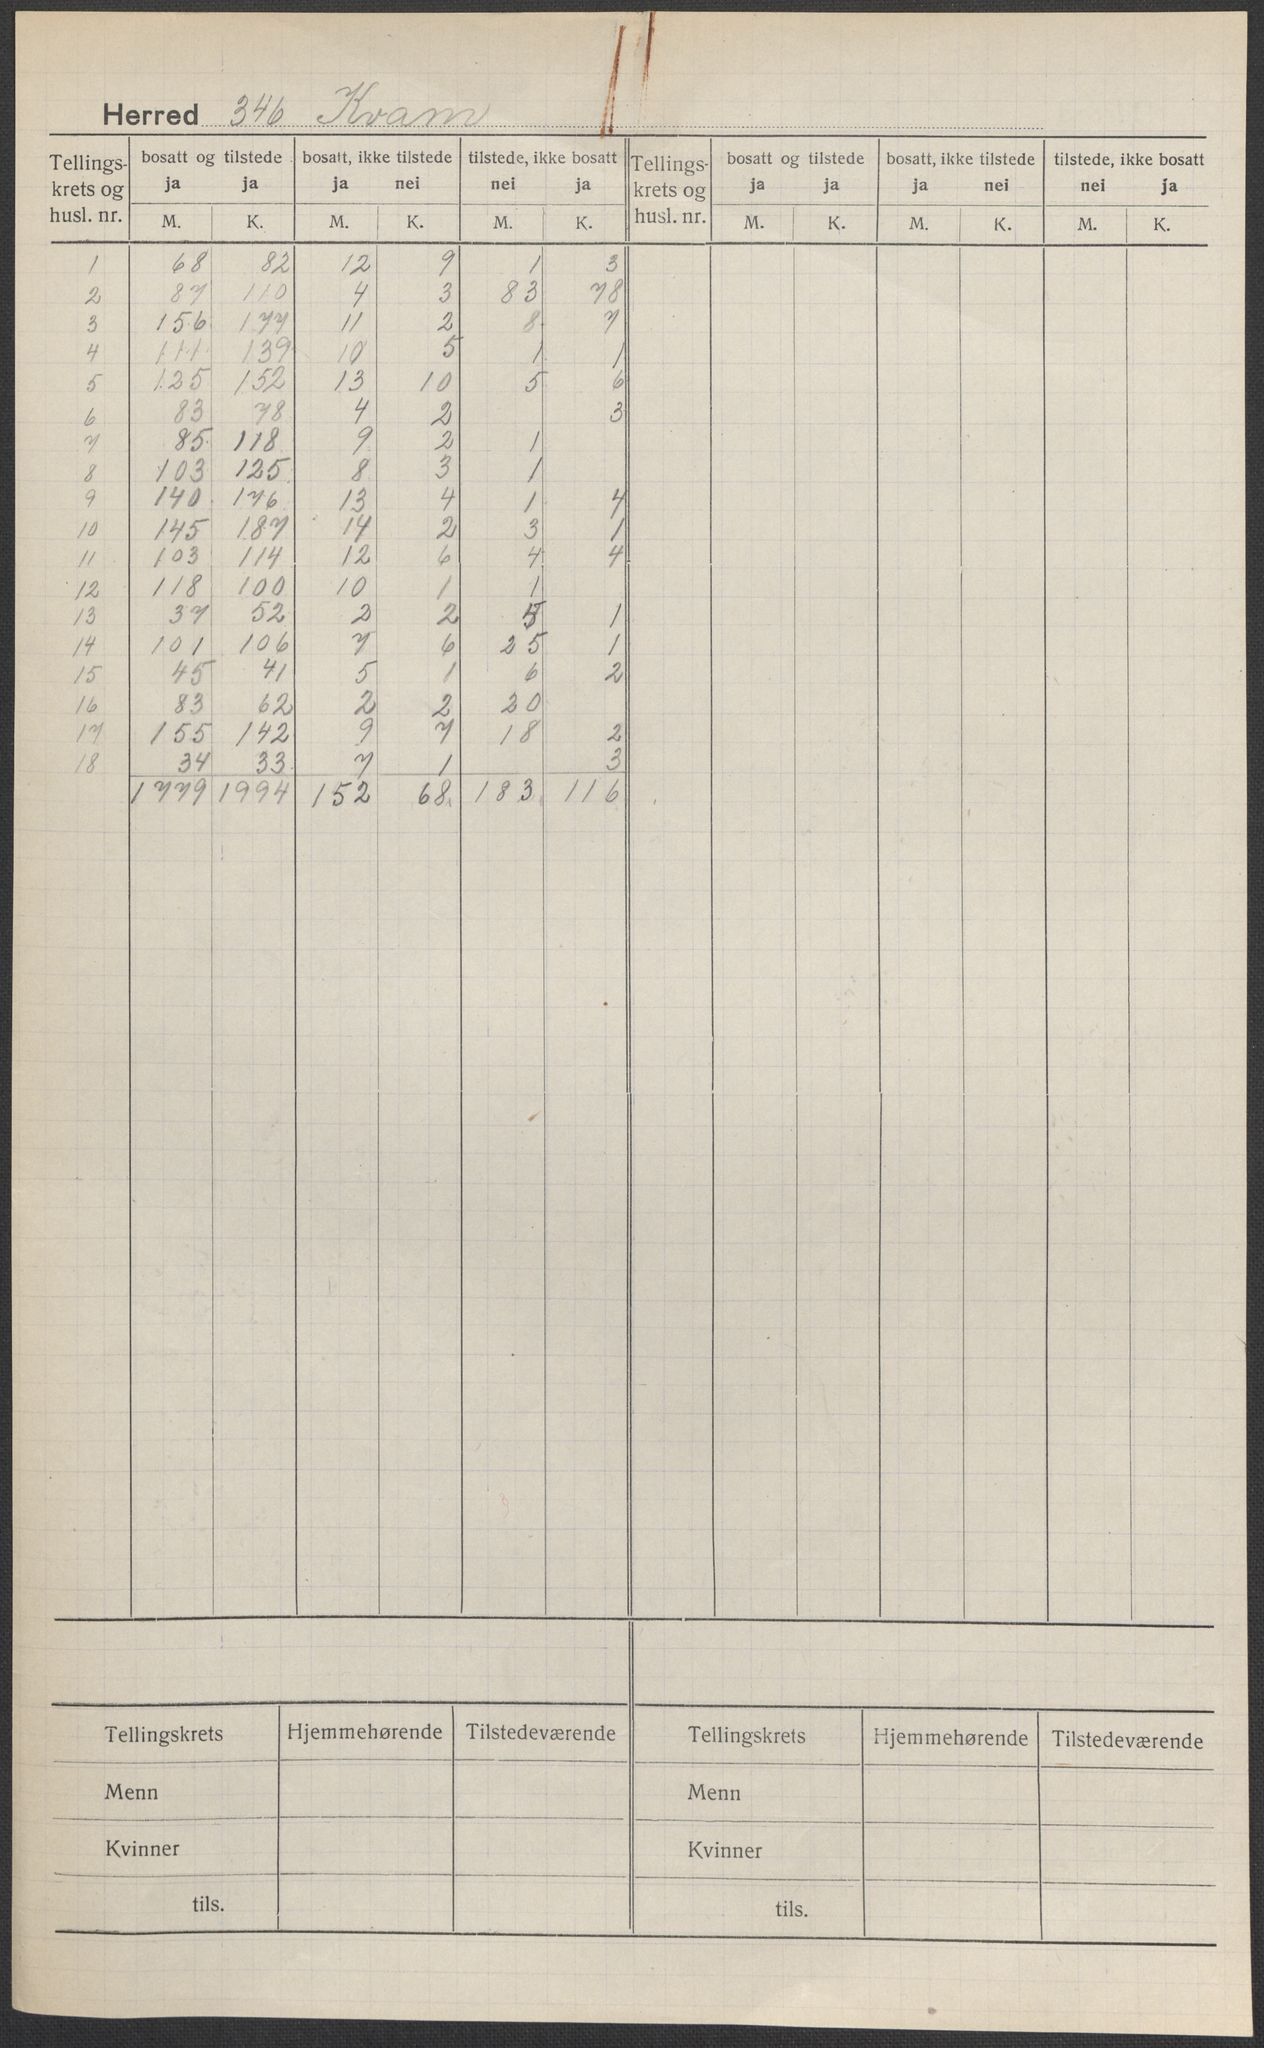 Herred 346 Kvam
Tellings- krets og husl. nr. | bosatt og tilstede | bosatt, ikke tilstede | tilstede, ikke bosatt | Tellings- krets og husl. nr. | bosatt og tilstede | bosatt, ikke tilstede | tilstede, ikke bosatt
ja ja ja nei nei ja ja ja ja nei nei ja
M. K. M. K. M. K. M. K. M. K. M. K.
1 68 82 12 9 1 3
2 87 110 4 3 83 78
3 156 177 11 2 8 7
4 111 139 10 5 1 1
5 125 152 13 10 5 6
6 83 78 4 2 3
7 85 118 9 2 1
8 103 125 8 3 1
9 140 176 13 4 1 4
10 145 187 14 2 3 1
11 103 114 12 6 4 4
12 118 100 10 1 1
13 37 52 2 2 5 1
14 101 106 7 6 25 1
15 45 41 5 1 6 2
16 83 62 2 2 20
17 155 142 9 7 18 2
18 34 33 7 1 3
1779 1994 152 68 183 116
Tellingskrets Hjemmehørende Tilstedeværende Tellingskrets Hjemmehørende Tilstedeværende
Menn Menn
Kvinner Kvinner
tils. tils.